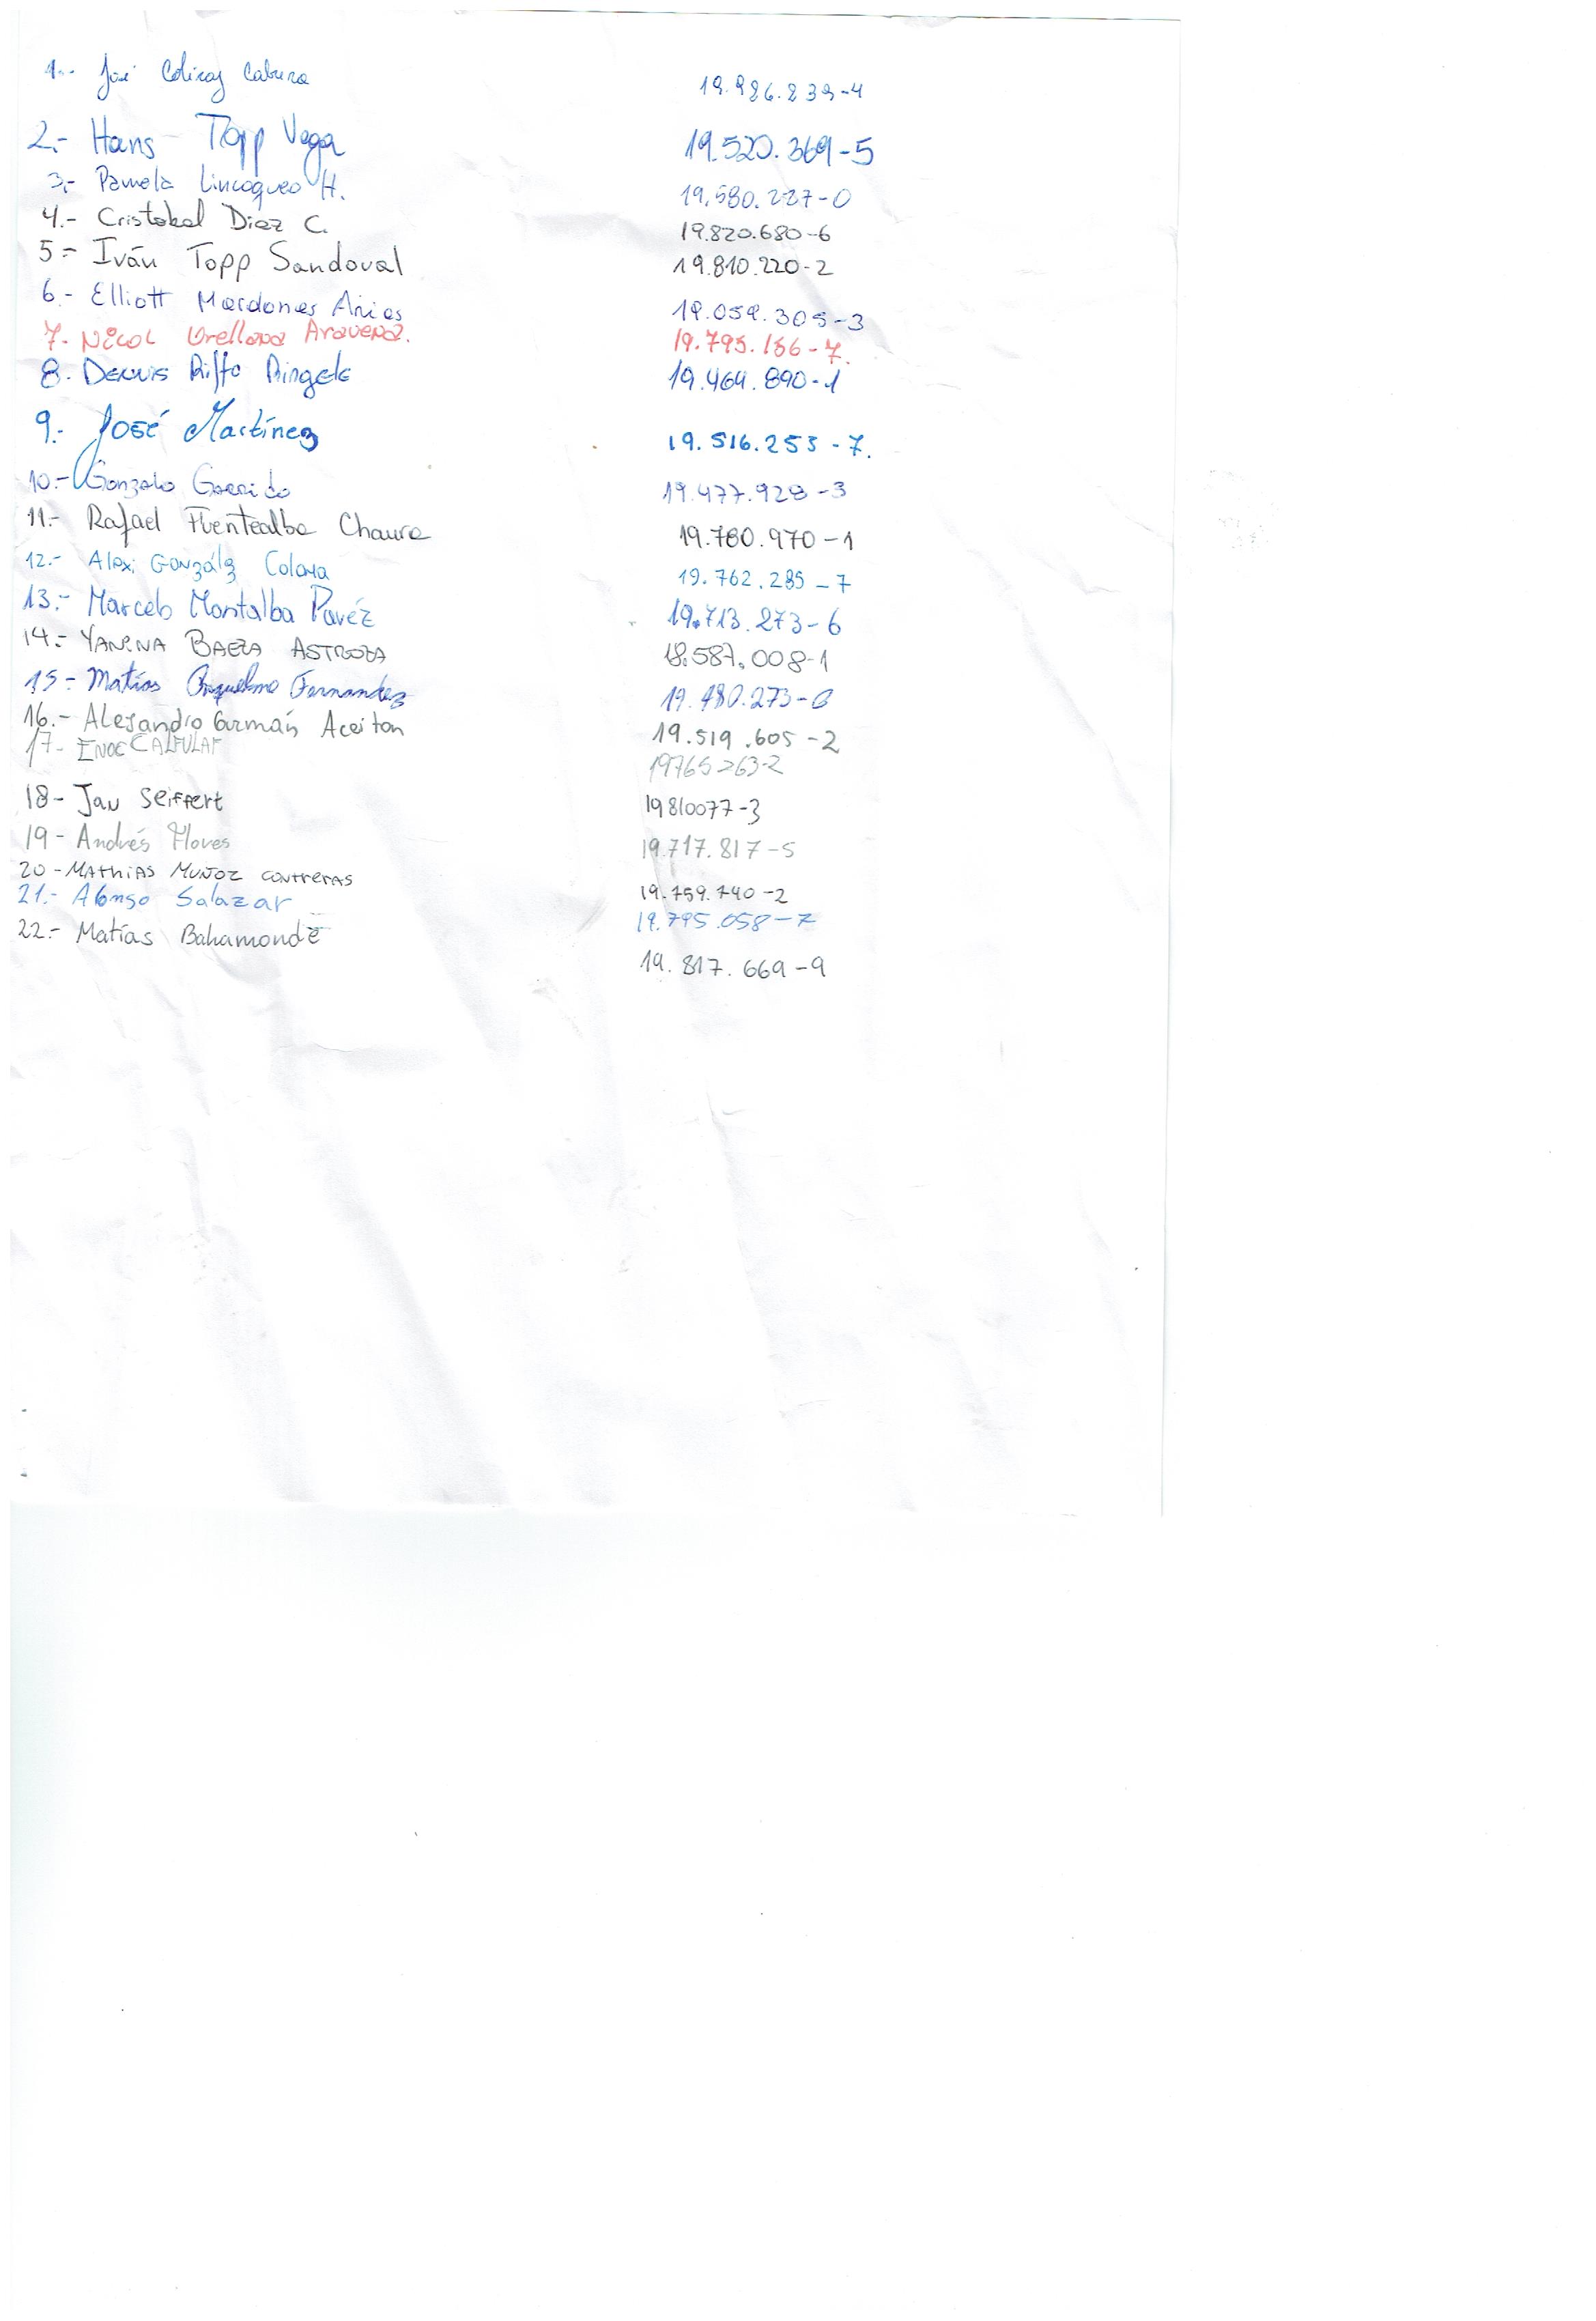 1.- José Coliray Cabrera 19.986.239-4
2.- Hans Topp Vega 19.520.369-5
3.- Pamela Lincoqueo H. 19.580.227-0
4.- Cristobal Diaz C. 19.820.680-6
5.- Iván Topp Sandoval 19.810.220-2
6.- Elliott Mardones Arias 19.059.305-3
7.- Nicol Orellana Aravena. 19.795.186-7.
8. Dennis Riffo Ringele 19.464.890-1
9.- José Martínez 19.516.253-7.
10.- Gonzalo Garrido 19.477.928-3
11.- Rafael Fuentealba Chaura 19.780.970-1
12.- Alexi González Coloma 19.762.285-7
13.- Marcelo Montalba Pavéz 19.713.273-6
14.- YANINA BAEZA ASTROZA 18.587.008-1
15.- Matías Fernandez 19.480.273-0
16.- Alejandro Guzmán Aceiton 19.519.605-2
17- ENOC CALFULAF 19765263-2
18- Jan Seiffert 19810077-3
19- Andrés Flores 19.717.817-5
20- MATHIAS MUÑOZ CONTRERAS 19.759.740-2
21.- Alonso Salazar 19.795.058-7
22.- Matías Bahamonde 19.817.669-9